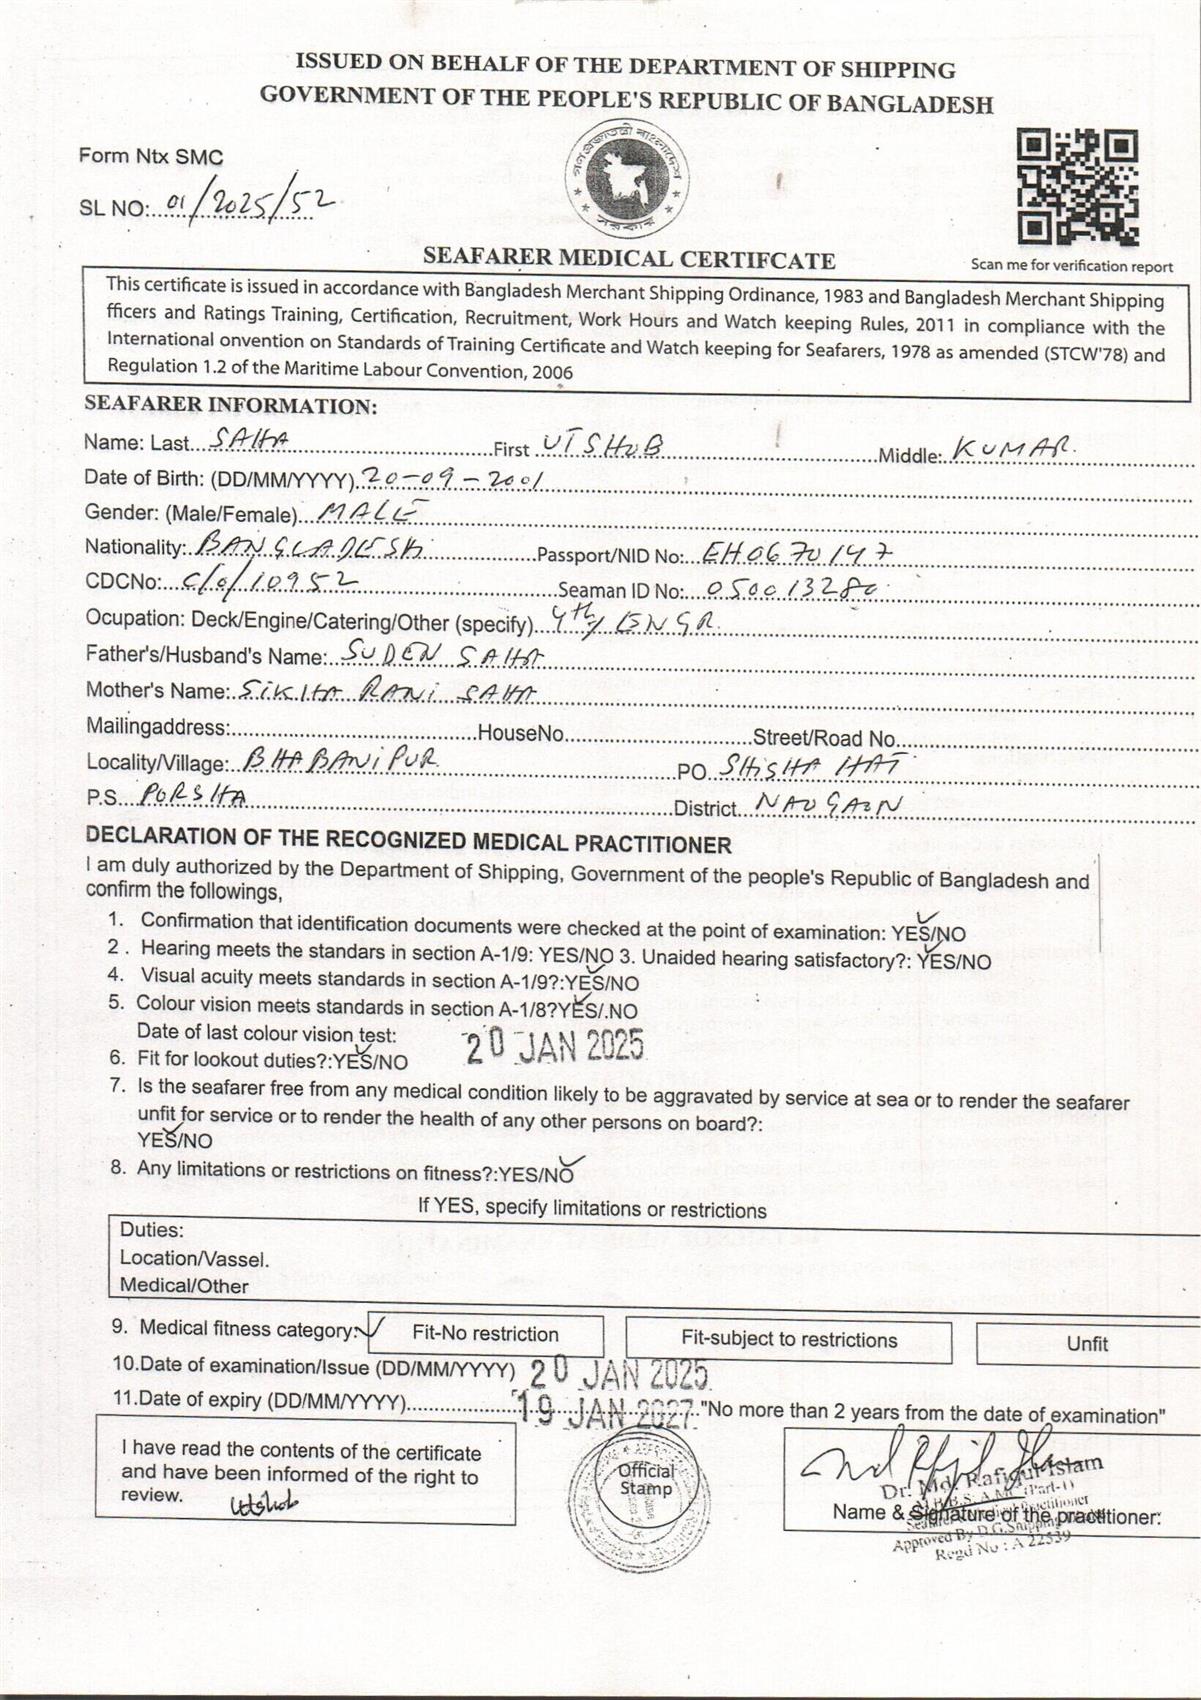 ISSUED ON BEHALF OF THE DEPARTMENT OF SHIPPING
GOVERNMENT OF THE PEOPLE'S REPUBLIC OF BANGLADESH
Form Ntx SMC
SL NO:..01/2025/52
গণপ্রজাতন্ত্রী বাংলাদেশ
সরকার
Scan me for verification report
SEAFARER MEDICAL CERTIFCATE
This certificate is issued in accordance with Bangladesh Merchant Shipping Ordinance, 1983 and Bangladesh Merchant Shipping
fficers and Ratings Training, Certification, Recruitment, Work Hours and Watch keeping Rules, 2011 in compliance with the
International onvention on Standards of Training Certificate and Watch keeping for Seafarers, 1978 as amended (STCW'78) and
Regulation 1.2 of the Maritime Labour Convention, 2006
SEAFARER INFORMATION:
Name: Last SAHA First UTSHOB Middle: KUMAR.
Date of Birth: (DD/MM/YYYY) 20-09-2001
Gender: (Male/Female) MALE
Nationality: BANGLADESHi Passport/NID No: EH0670147
CDCNo: C/O/10952 Seaman ID No: 050013280
Ocupation: Deck/Engine/Catering/Other (specify) 4th/ ENGR.
Father's/Husband's Name: SUDEN SAHA
Mother's Name: SiKHA RANi SAHA
Mailingaddress: HouseNo Street/Road No
Locality/Village: BHABANiPUR PO SHiSHA HAT
P.S. PORSHA District NAOGAON
DECLARATION OF THE RECOGNIZED MEDICAL PRACTITIONER
I am duly authorized by the Department of Shipping, Government of the people's Republic of Bangladesh and
confirm the followings,
1. Confirmation that identification documents were checked at the point of examination: YES/NO
2 . Hearing meets the standars in section A-1/9: YES/NO 3. Unaided hearing satisfactory?: YES/NO
4. Visual acuity meets standards in section A-1/9?:YES/NO
5. Colour vision meets standards in section A-1/8?YES/.NO
Date of last colour vision test: 20 JAN 2025
6. Fit for lookout duties?:YES/NO
7. Is the seafarer free from any medical condition likely to be aggravated by service at sea or to render the seafarer
unfit for service or to render the health of any other persons on board?:
YES/NO
8. Any limitations or restrictions on fitness?:YES/NO
If YES, specify limitations or restrictions
Duties:
Location/Vassel.
Medical/Other
9. Medical fitness category: Fit-No restriction Fit-subject to restrictions Unfit
10.Date of examination/Issue (DD/MM/YYYY) 20 JAN 2025
11.Date of expiry (DD/MM/YYYY) 19 JAN 2027 "No more than 2 years from the date of examination"
I have read the contents of the certificate
and have been informed of the right to
review. Utshob
Official
Stamp
Dr. Md. Rafiqul Islam
M.B.B.S. A.M.C (Part-1)
Name & Signature of the practitioner:
Approved By D.G.Shipping
Regd No : A 22539